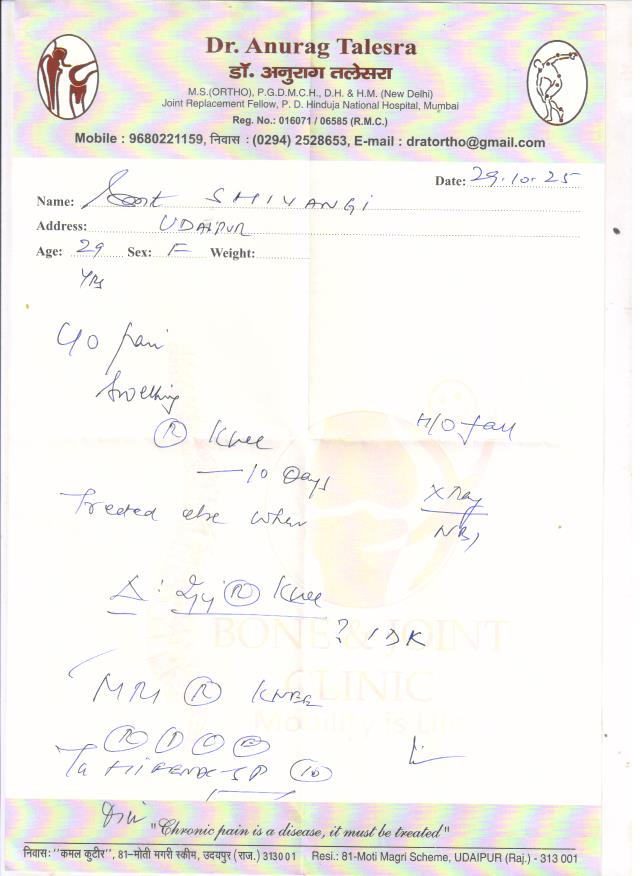 Dr. Anurag Talesra
डॉ. अनुराग तलेसरा
M.S.(ORTHO), P.G.D.M.C.H., D.H. & H.M. (New Delhi)
Joint Replacement Fellow, P. D. Hinduja National Hospital, Mumbai
Reg. No.: 016071 / 06585 (R.M.C.)
Mobile : 9680221159, निवास : (0294) 2528653, E-mail : dratortho@gmail.com
Date: 29.10.25
Name: SHIVANGI
Address: UDAIPUR
Age: 29 Sex: F Weight:
Yrs
C/O pain
Swelling
H/O fall
R Knee
— 10 Days
X Ray
Treated else where
NBI
Δ: Inj R Knee
? IDK
BONE & JOINT
CLINIC
Mobility is Life
MRI R KNEE
R I C E
Ta HIFENAC-SP 10
"Chronic pain is a disease, it must be treated"
निवास: "कमल कुटीर", 81-मोती मगरी स्कीम, उदयपुर (राज.) 313001 Resi.: 81-Moti Magri Scheme, UDAIPUR (Raj.) - 313 001